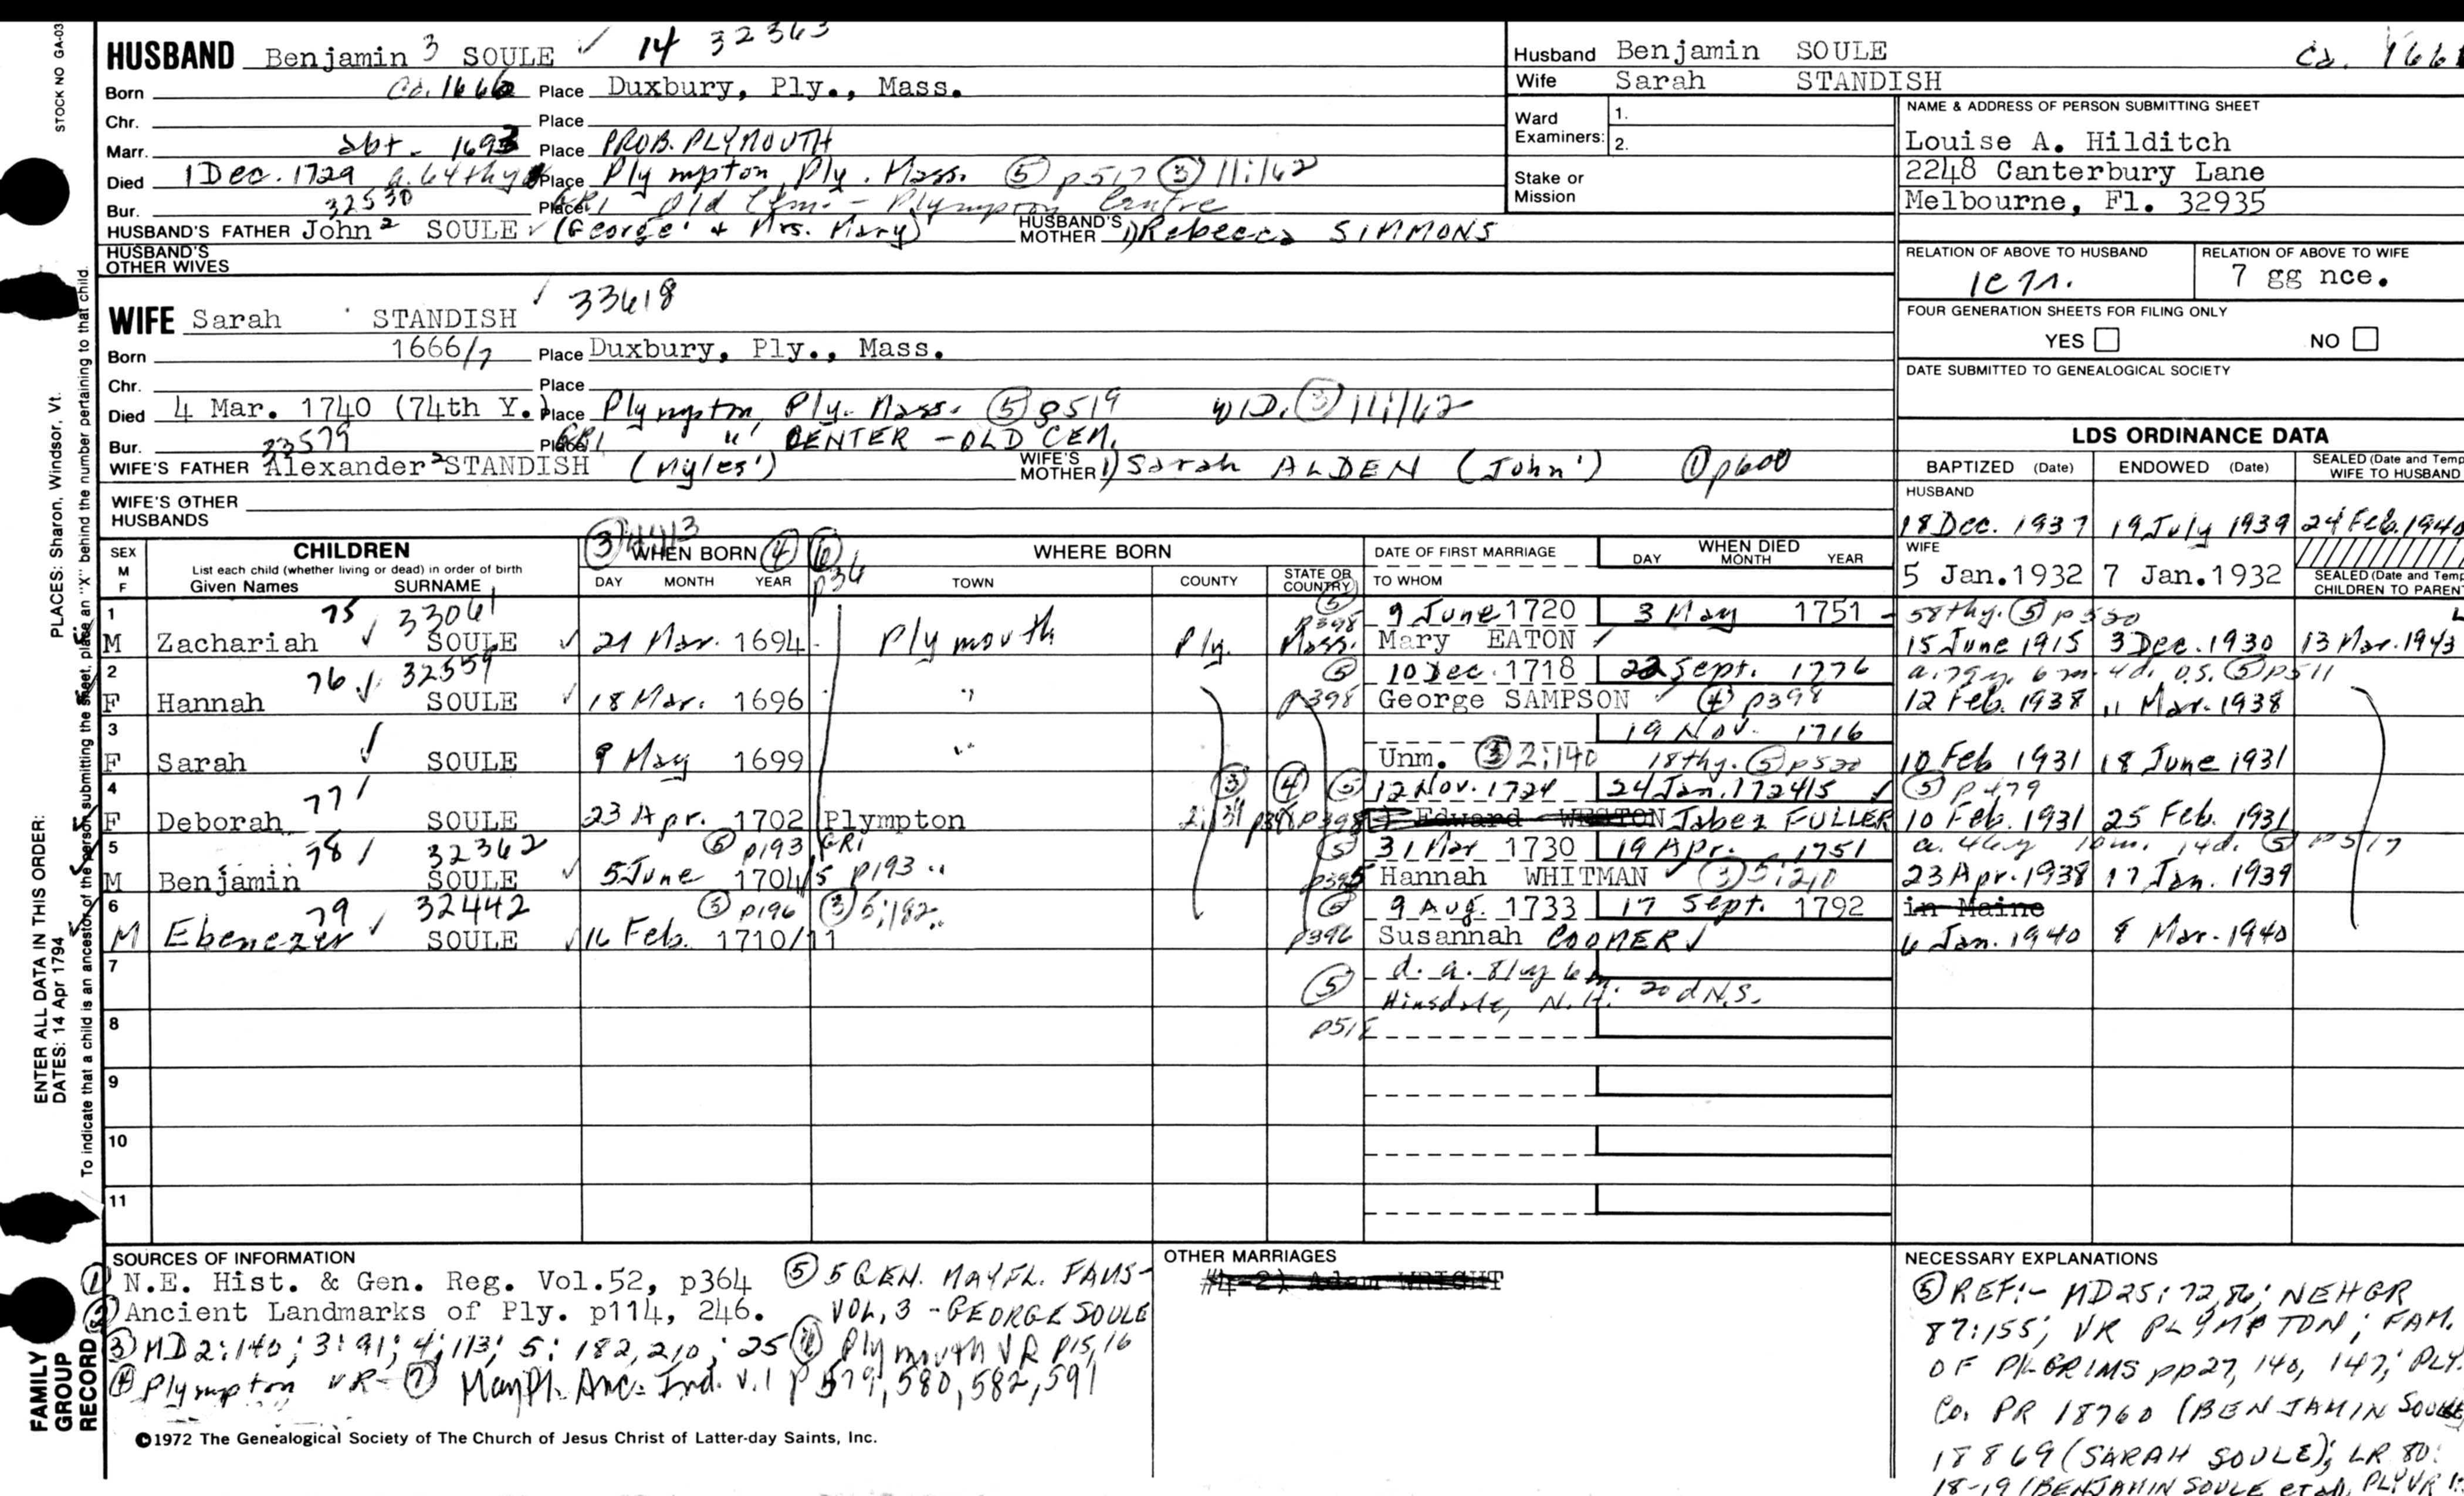 STOCK NO GA-03
HUSBAND Benjamin 3 SOULE ✓ 14 32363
Born Ca. 1666 Place Duxbury, Ply., Mass.
Chr. Place
Marr. abt. 1693 Place PROB. PLYMOUTH
Died 1 Dec. 1729 a. 64thy Place Plympton, Ply. Mass. ⑤ p517 ③ 11:162
Bur. 32530 Place GR1 Old Cem. - Plympton Centre
HUSBAND'S FATHER John 2 SOULE ✓ (George' & Mrs. Mary) HUSBAND'S MOTHER 1) Rebecca SIMMONS
HUSBAND'S OTHER WIVES
WIFE Sarah STANDISH ✓ 33618
Born 1666/7 Place Duxbury, Ply., Mass.
Chr. Place
Died 4 Mar. 1740 (74th Y.) Place Plympton, Ply. Mass. ⑤ p519 WID. ③ 11:162
Bur. 33579 Place GR1 " CENTER - OLD CEM.
WIFE'S FATHER Alexander 2 STANDISH (Myles') WIFE'S MOTHER 1) Sarah ALDEN (John') ① p600
WIFE'S OTHER HUSBANDS
Husband Benjamin SOULE
Wife Sarah STANDISH
Ward Examiners: 1.
2.
Stake or Mission
NAME & ADDRESS OF PERSON SUBMITTING SHEET
Louise A. Hilditch
2248 Canterbury Lane
Melbourne, Fl. 32935
RELATION OF ABOVE TO HUSBAND RELATION OF ABOVE TO WIFE
7 gg nce.
FOUR GENERATION SHEETS FOR FILING ONLY
YES NO
DATE SUBMITTED TO GENEALOGICAL SOCIETY
LDS ORDINANCE DATA
BAPTIZED (Date) ENDOWED (Date) SEALED (Date and Temp WIFE TO HUSBAND
HUSBAND
18 Dec. 1937 19 July 1939 24 Feb. 1940
WIFE
5 Jan. 1932 7 Jan. 1932 SEALED (Date and Temp CHILDREN TO PAREN
SEX M F CHILDREN
List each child (whether living or dead) in order of birth
Given Names SURNAME
③ WHEN BORN ④
DAY MONTH YEAR
⑥ p36 WHERE BORN
TOWN COUNTY STATE OR COUNTRY
DATE OF FIRST MARRIAGE
TO WHOM
WHEN DIED
DAY MONTH YEAR
1 75 33061 ⑤ p398 9 June 1720 3 May 1751 58thy. ⑤ p520
M Zachariah ✓ SOULE ✓ 21 Mar. 1694 Plymouth Ply. Mass. Mary EATON 15 June 1915 3 Dec. 1930 13 Mar. 1943
2 76 ✓ 32559 ⑤ 10 Dec. 1718 22 Sept. 1776 a. 79y. 6m. 4d. O.S. ⑤ p511
F Hannah SOULE ✓ 18 Mar. 1696 " p398 George SAMPSON ✓ ④ p398 12 Feb. 1938 11 Mar. 1938
3 ✓ 19 Nov. 1716
F Sarah SOULE 9 May 1699 " Unm. ③ 2:140 18thy. ⑤ p520 10 Feb 1931 18 June 1931
4 77 ③ ④ ⑤ 12 Nov. 1724 24 Jan. 1724/5 ⑤ p479
F Deborah SOULE 23 Apr. 1702 Plympton p398 1) Edward WESTON Jabez FULLER 10 Feb. 1931 25 Feb. 1931
5 78 32362 ⑥ p193 GR1 ⑤ 31 Mar 1730 19 Apr. 1751 a. 46y 10m. 14d. ⑤ p517
M Benjamin SOULE ✓ 5 June 1704 p193 " Hannah WHITMAN ✓ ③ 5:210 23 Apr. 1938 17 Jan. 1939
6 79 32442 ③ p196 ③ 5:182 ⑤ 9 Aug. 1733 17 Sept. 1792 in Maine
M Ebenezer ✓ SOULE ✓ 16 Feb. 1710/11 p396 Susannah COOMER ✓ 6 Jan. 1940 8 Mar. 1940
7 ⑤ d. a. 81y 6m
Hinsdale, N.H. 20d N.S.
8
9
10
11
SOURCES OF INFORMATION
① N.E. Hist. & Gen. Reg. Vol.52, p364 ⑤ 5 GEN. MAYFL. FAMS-
② Ancient Landmarks of Ply. p114, 246. VOL, 3 - GEORGE SOULE
③ MD 2:140; 3:91; 4:113; 5:182, 210; 25 Plymouth VR p15,16
④ Plympton VR- ⑦ Mayfl. Anc. Ind. v.1 p 579, 580, 582, 591
©1972 The Genealogical Society of The Church of Jesus Christ of Latter-day Saints, Inc.
OTHER MARRIAGES
#4-2) Adam WRIGHT
NECESSARY EXPLANATIONS
⑤ REF:- MD25:72,86; NEHGR
87:155; VR PLYMPTON; FAM.
OF PILGRIMS pp27, 140, 147; PLY.
Co. PR 18760 (BENJAMIN SOULE
18869 (SARAH SOULE); LR 80:
18-19 (BENJAMIN SOULE et al), PLY VR 1:
FAMILY GROUP RECORD
ENTER ALL DATA IN THIS ORDER:
DATES: 14 Apr 1794
PLACES: Sharon, Windsor, Vt.
To indicate that a child is an ancestor of the person submitting the sheet, place an "X" behind the number pertaining to that child.